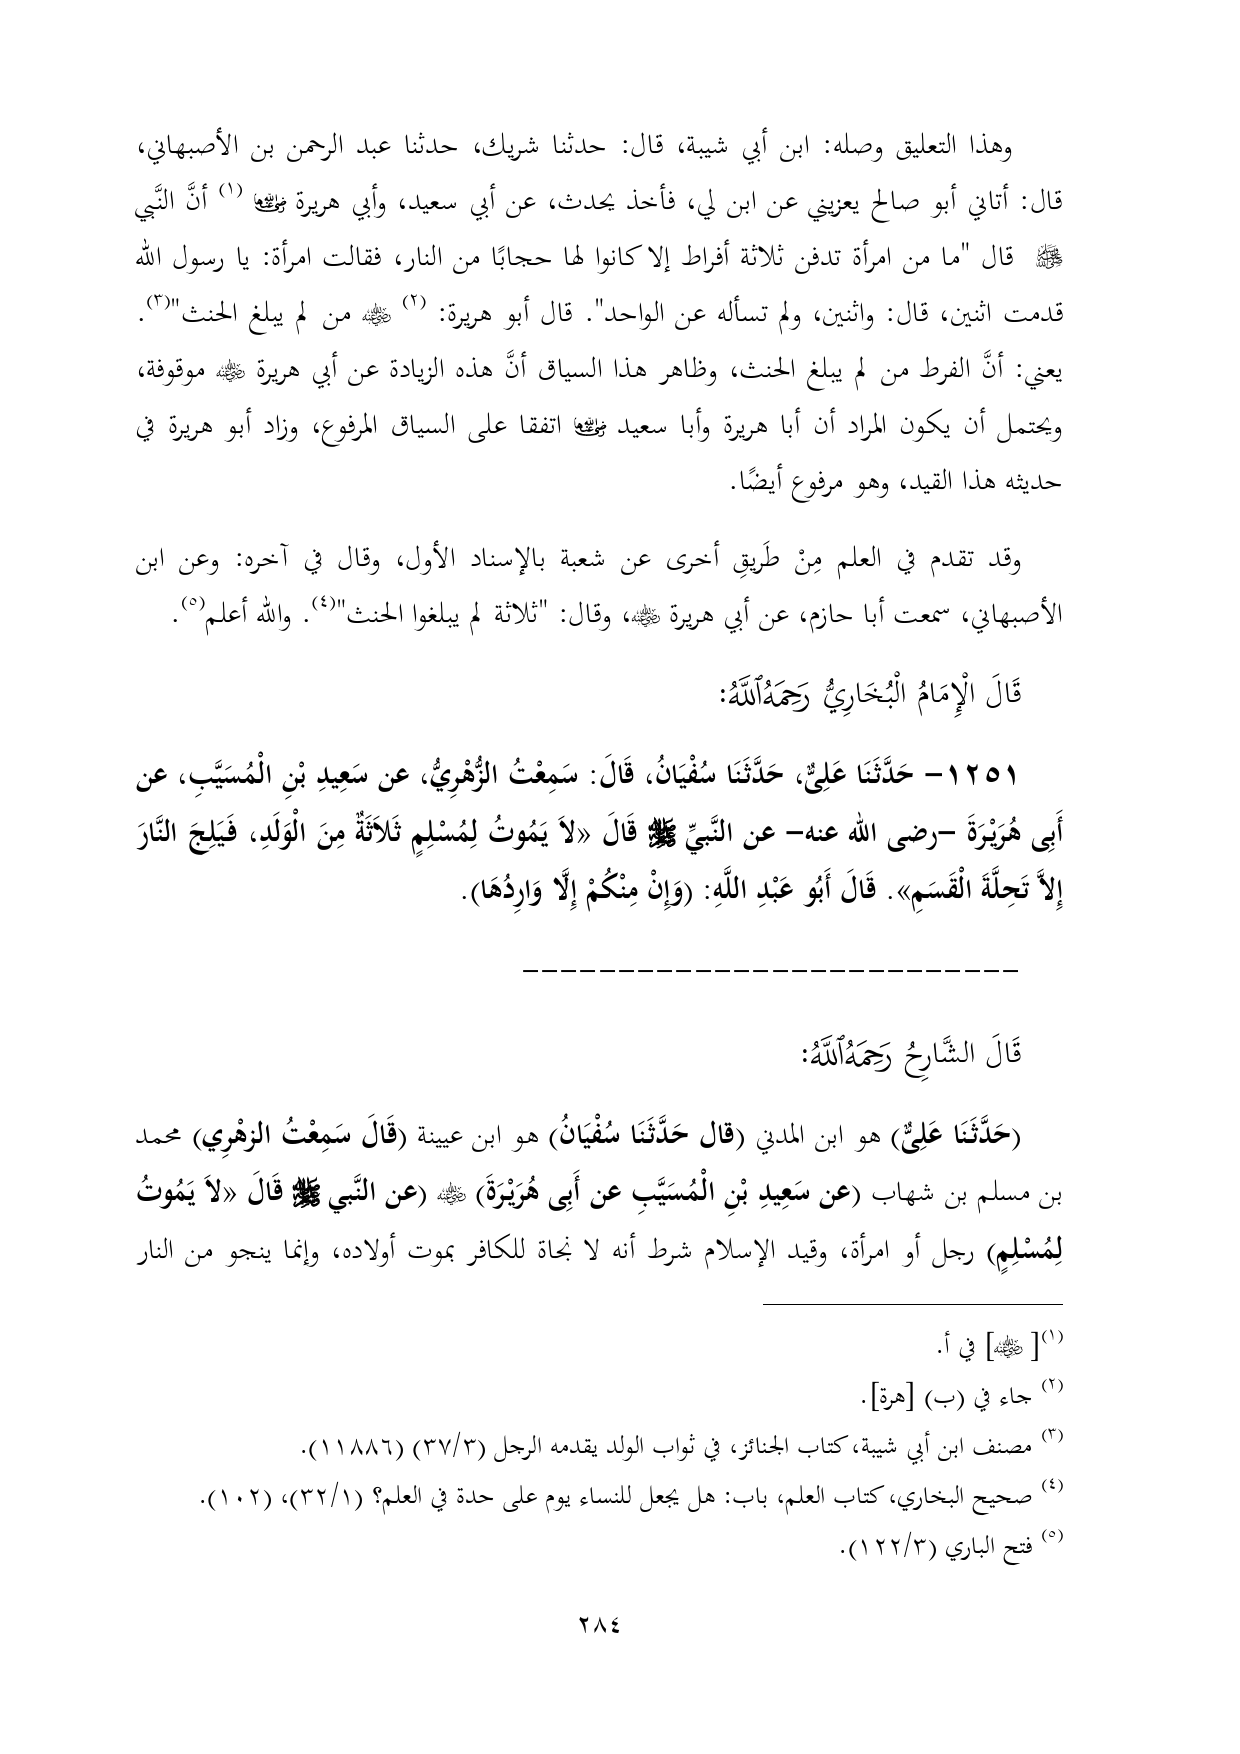 وهذا التعليق وصله: ابن أبي شيبة، قال: حدثنا شريك، حدثنا عبد الرحمن بن الأصبهاني،
قال: أتاني أبو صالح يعزيني عن ابن لي، فأخذ يحدث، عن أبي سعيد، وأبي هريرة رضي الله عنهما (١) أنَّ النَّبي
ﷺ قال "ما من امرأة تدفن ثلاثة أفراط إلا كانوا لها حجابًا من النار، فقالت امرأة: يا رسول الله
قدمت اثنين، قال: واثنين، ولم تسأله عن الواحد". قال أبو هريرة: (٢) رضي الله عنه من لم يبلغ الحنث"(٣).
يعني: أنَّ الفرط من لم يبلغ الحنث، وظاهر هذا السياق أنَّ هذه الزيادة عن أبي هريرة رضي الله عنه موقوفة،
ويحتمل أن يكون المراد أن أبا هريرة وأبا سعيد رضي الله عنهما اتفقا على السياق المرفوع، وزاد أبو هريرة في
حديثه هذا القيد، وهو مرفوع أيضًا.
وقد تقدم في العلم مِنْ طَريقِ أخرى عن شعبة بالإسناد الأول، وقال في آخره: وعن ابن
الأصبهاني، سمعت أبا حازم، عن أبي هريرة رضي الله عنه، وقال: "ثلاثة لم يبلغوا الحنث"(٤). والله أعلم(٥).
قَالَ الْإِمَامُ الْبُخَارِيُّ رَحِمَهُ ٱللَّهُ:
١٢٥١- حَدَّثَنَا عَلِيٌّ، حَدَّثَنَا سُفْيَانُ، قَالَ: سَمِعْتُ الزُّهْرِيُّ، عن سَعِيدِ بْنِ الْمُسَيَّبِ، عن
أَبِى هُرَيْرَةَ -رضى الله عنه- عن النَّبيِّ ﷺ قَالَ «لاَ يَمُوتُ لِمُسْلِمٍ ثَلاَثَةٌ مِنَ الْوَلَدِ، فَيَلِجَ النَّارَ
إِلاَّ تَحِلَّةَ الْقَسَمِ». قَالَ أَبُو عَبْدِ اللَّهِ: (وَإِنْ مِنْكُمْ إِلَّا وَارِدُهَا).
--------------------------
قَالَ الشَّارِحُ رَحِمَهُ ٱللَّهُ:
(حَدَّثَنَا عَلِيٌّ) هو ابن المدني (قال حَدَّثَنَا سُفْيَانُ) هو ابن عيينة (قَالَ سَمِعْتُ الزهْرِي) محمد
بن مسلم بن شهاب (عن سَعِيدِ بْنِ الْمُسَيَّبِ عن أَبِى هُرَيْرَةَ) رضي الله عنه (عن النَّبي ﷺ قَالَ «لاَ يَمُوتُ
لِمُسْلِمٍ) رجل أو امرأة، وقيد الإسلام شرط أنه لا نجاة للكافر بموت أولاده، وإنما ينجو من النار
(١)[ رضي الله عنه] في أ.
(٢) جاء في (ب) [هرة].
(٣) مصنف ابن أبي شيبة، كتاب الجنائز، في ثواب الولد يقدمه الرجل (٣٧/٣) (١١٨٨٦).
(٤) صحيح البخاري، كتاب العلم، باب: هل يجعل للنساء يوم على حدة في العلم؟ (٣٢/١)، (١٠٢).
(٥) فتح الباري (١٢٢/٣).
٢٨٤